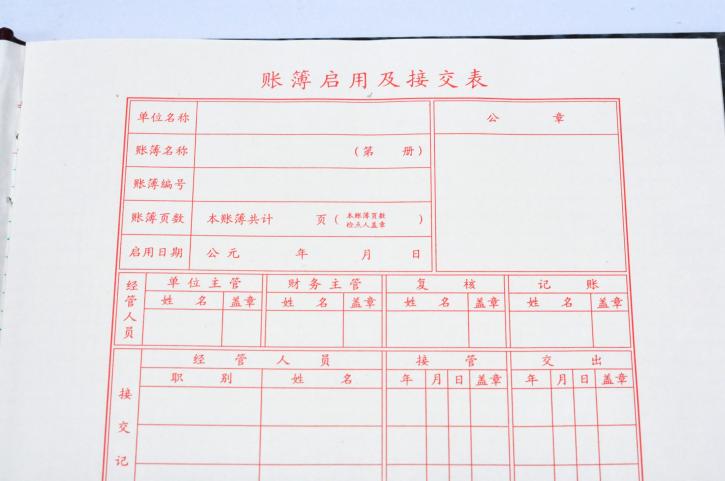 账簿启用及接交表
单位名称
公 章
账簿名称 (第 册)
账簿编号
账簿页数 本账簿共计 页(本账簿页数 检点人盖章)
启用日期 公元 年 月 日
经管人员
单位主管 财务主管 复核 记账
姓名 盖章 姓名 盖章 姓名 盖章 姓名 盖章
接交记
经管人员 接管 交出
职别 姓名 年 月 日 盖章 年 月 日 盖章